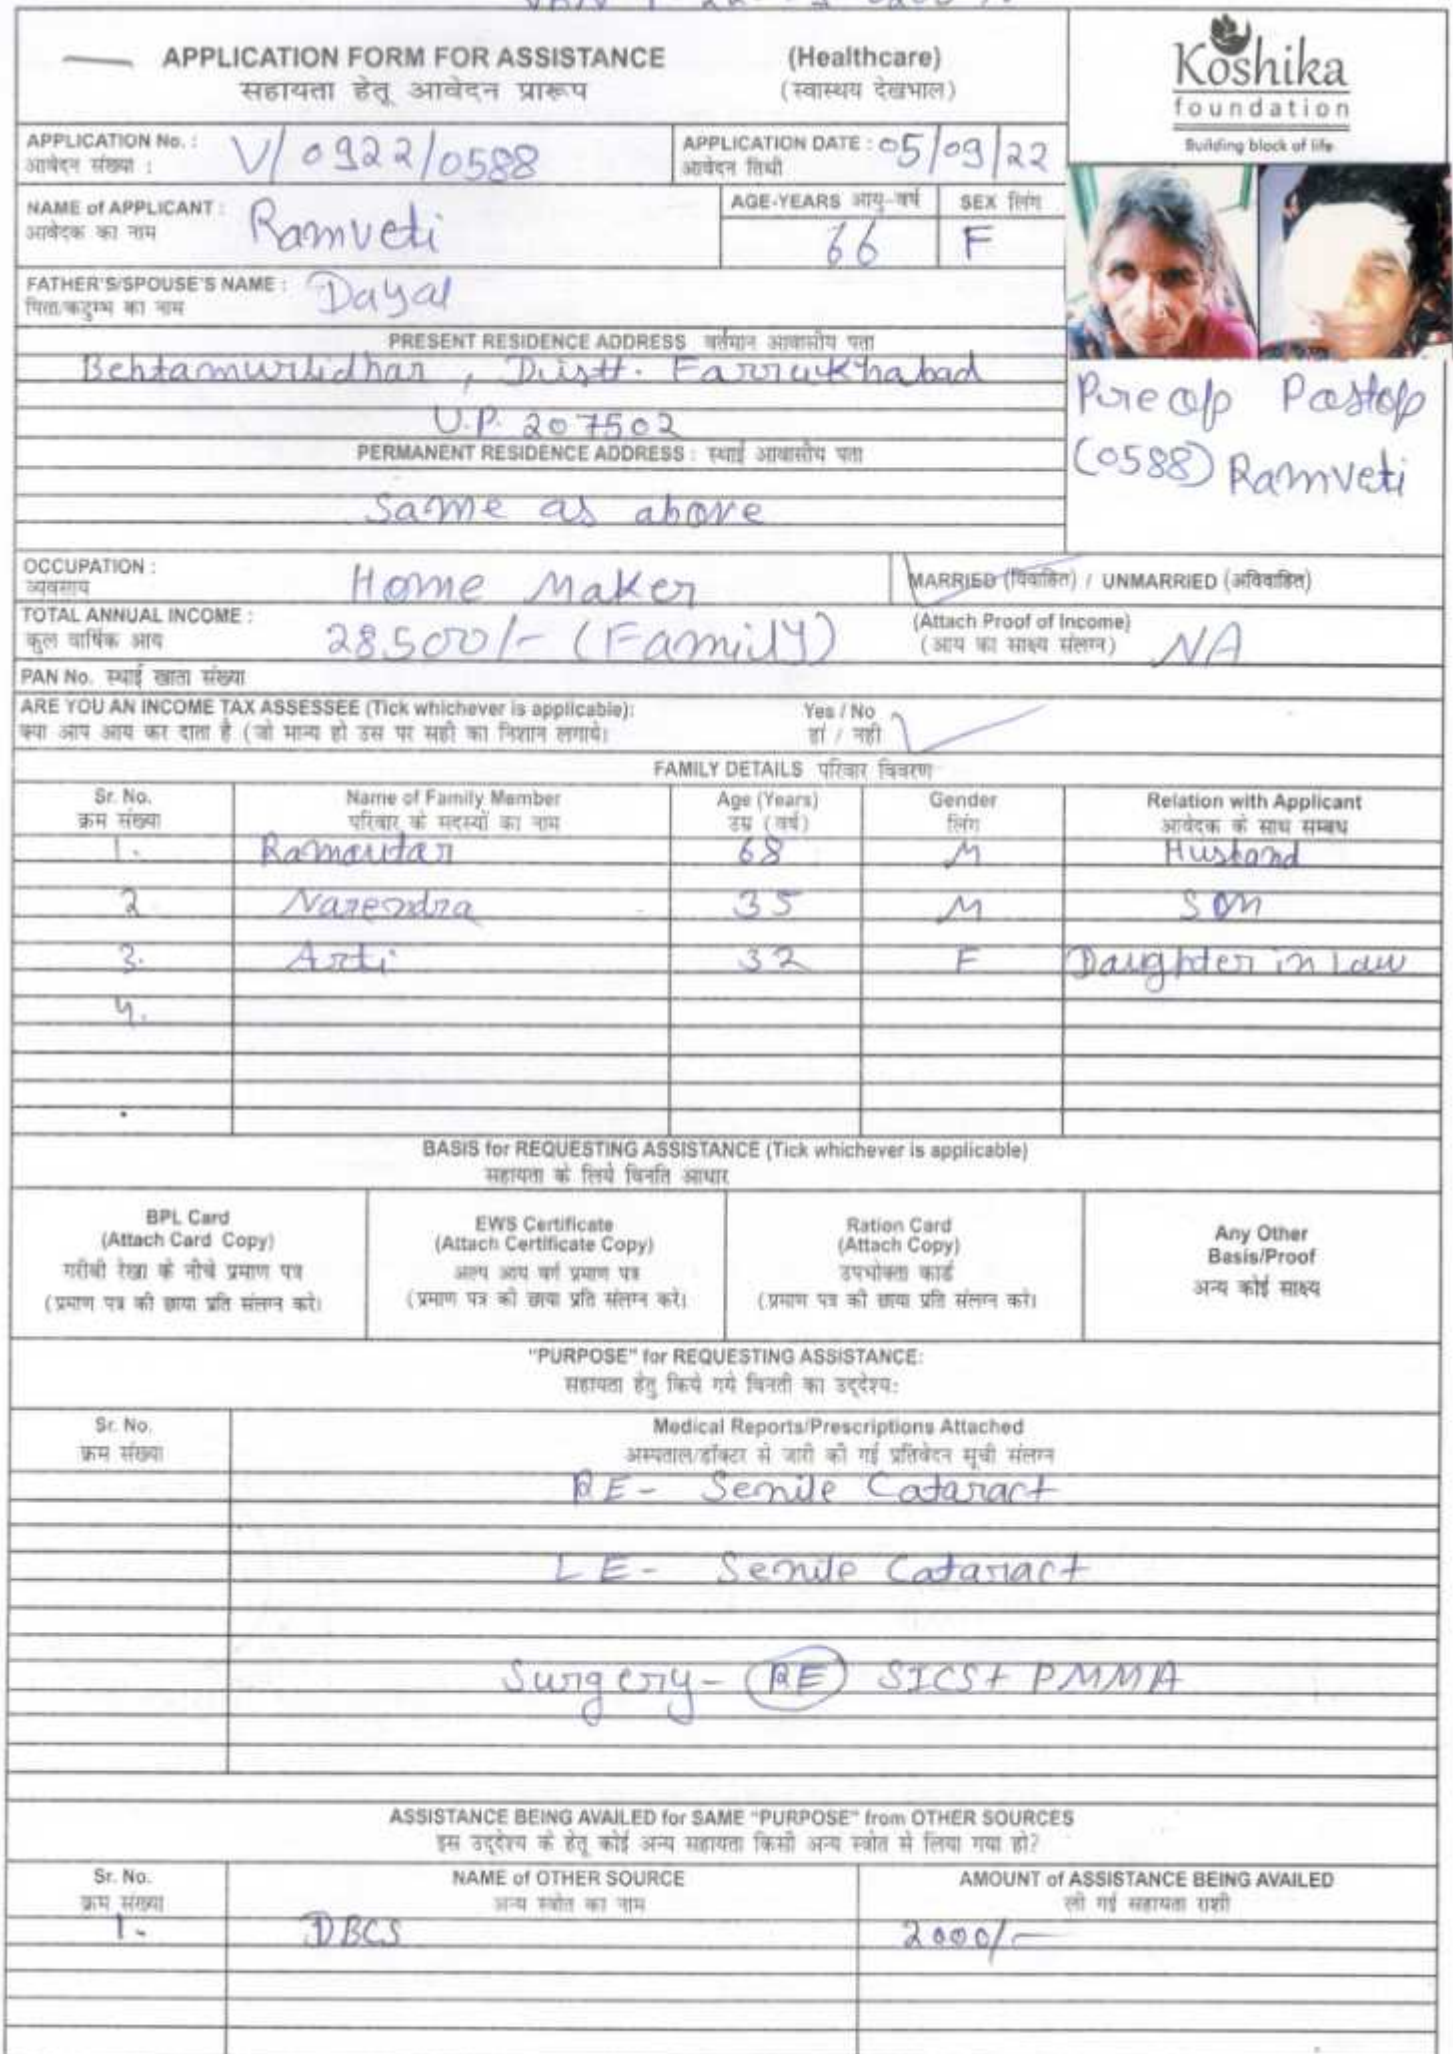 APPLICATION FORM FOR ASSISTANCE (Healthcare)
सहायता हेतू आवेदन प्रारूप (स्वास्थय देखभाल)
Koshika
foundation
Building block of life
APPLICATION No. : V/0922/0588 APPLICATION DATE : 05/09/22
आवेदन संख्या : आवेदन तिथी
NAME of APPLICANT : Ramveti AGE-YEARS आयु-वर्ष 66 SEX लिंग F
आवेदक का नाम
FATHER'S/SPOUSE'S NAME : Dayal
पिता/कटुम्भ का नाम
PRESENT RESIDENCE ADDRESS वर्तमान आवासीय पता
Behtamurlidhar , Distt. Farrukhabad
U.P. 207502
Preop Postop
(0588) Ramveti
PERMANENT RESIDENCE ADDRESS : स्थाई आवासीय पता
Same as above
OCCUPATION : Home Maker MARRIED (विवाहित) / UNMARRIED (अविवाहित)
व्यवसाय
TOTAL ANNUAL INCOME : 28500/- (Family) (Attach Proof of Income) NA
कुल वार्षिक आय (आय का साक्ष्य संलग्न)
PAN No. स्थाई खाता संख्या
ARE YOU AN INCOME TAX ASSESSEE (Tick whichever is applicable): Yes / No
क्या आप आय कर दाता है (जो मान्य हो उस पर सही का निशान लगाये। हां / नही
FAMILY DETAILS परिवार विवरण
Sr. No. Name of Family Member Age (Years) Gender Relation with Applicant
क्रम संख्या परिवार के सदस्यों का नाम उम्र (वर्ष) लिंग आवेदक के साथ सम्बध
1. Ramautar 68 M Husband
2 Narendra 35 M Son
3. Arti 32 F Daughter in Law
4.
BASIS for REQUESTING ASSISTANCE (Tick whichever is applicable)
सहायता के लिये विनति आधार
BPL Card
(Attach Card Copy)
गरीबी रेखा के नीचे प्रमाण पत्र
(प्रमाण पत्र की छाया प्रति संलग्न करे।
EWS Certificate
(Attach Certificate Copy)
अल्प आय वर्ग प्रमाण पत्र
(प्रमाण पत्र की छाया प्रति संलग्न करे।
Ration Card
(Attach Copy)
उपभोक्ता कार्ड
(प्रमाण पत्र की छाया प्रति संलग्न करे।
Any Other
Basis/Proof
अन्य कोई साक्ष्य
"PURPOSE" for REQUESTING ASSISTANCE:
सहायता हेतु किये गये विनती का उद्देश्य:
Sr. No. Medical Reports/Prescriptions Attached
क्रम संख्या अस्पताल/डॉक्टर से जारी की गई प्रतिवेदन सूची संलग्न
RE- Senile Cataract
LE- Senile Cataract
Surgery- RE SICS+ PMMA
ASSISTANCE BEING AVAILED for SAME "PURPOSE" from OTHER SOURCES
इस उद्देश्य के हेतू कोई अन्य सहायता किसी अन्य स्त्रोत से लिया गया हो?
Sr. No. NAME of OTHER SOURCE AMOUNT of ASSISTANCE BEING AVAILED
क्रम संख्या अन्य स्त्रोत का नाम ली गई सहायता राशी
1. DBCS 2000/-